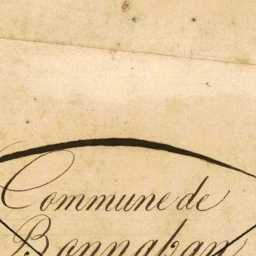 Commune de
Bonnaban